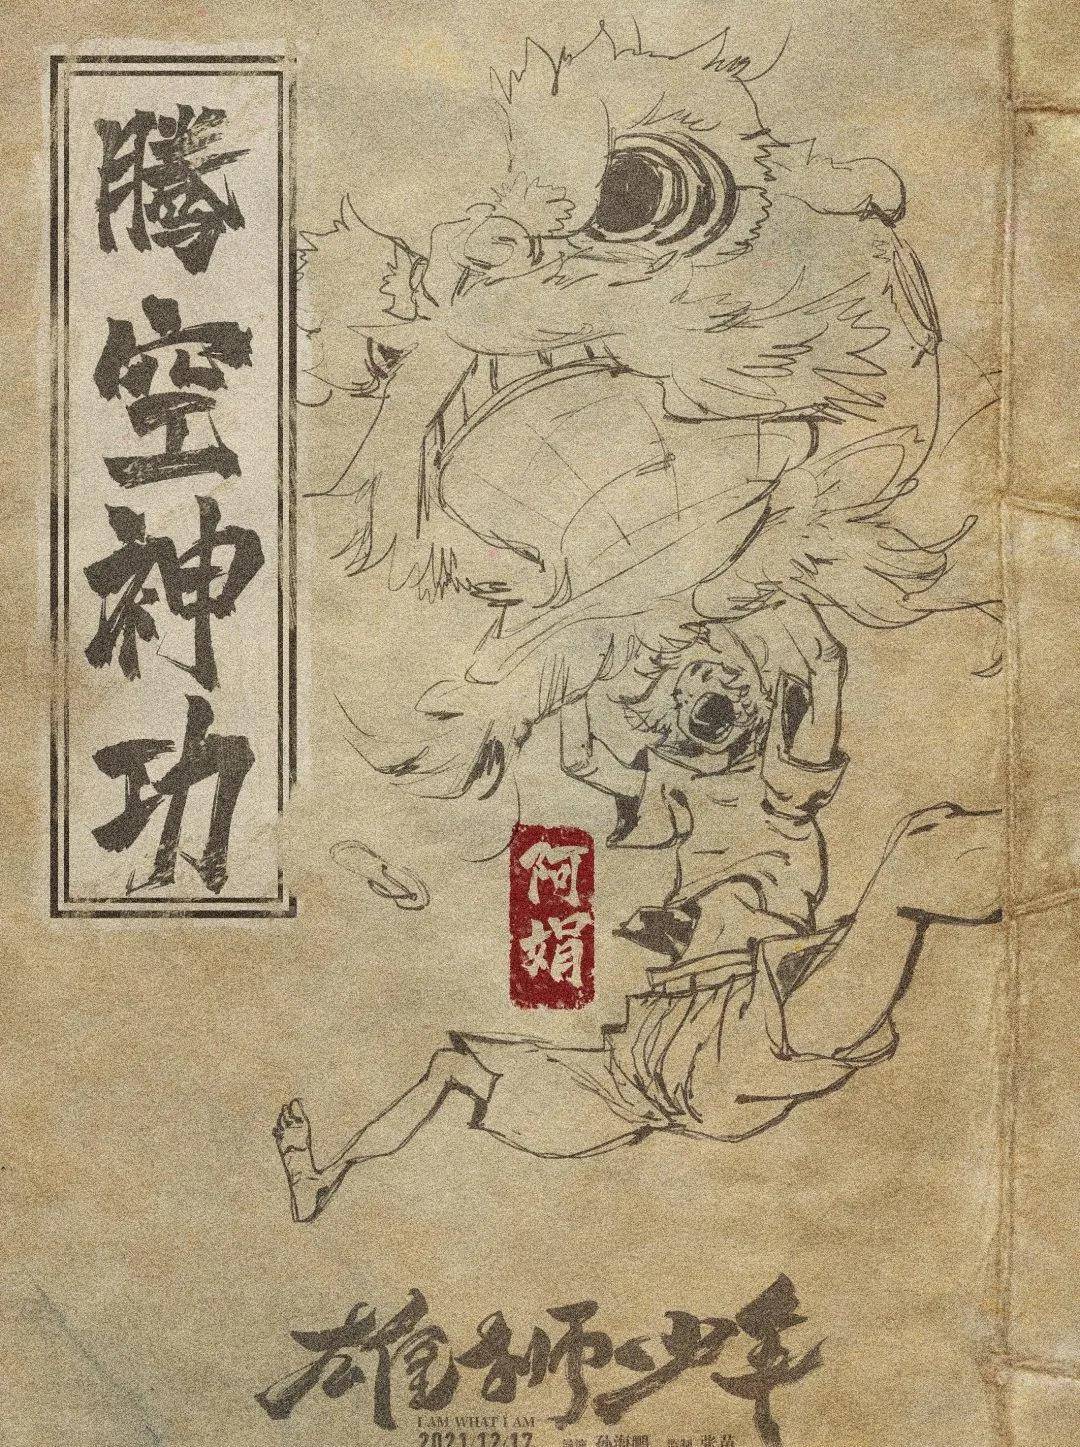 腾空神功
阿娟
雄狮少年
I AM WHAT I AM
2021/12/17 导演 孙海鹏 监制 张苗